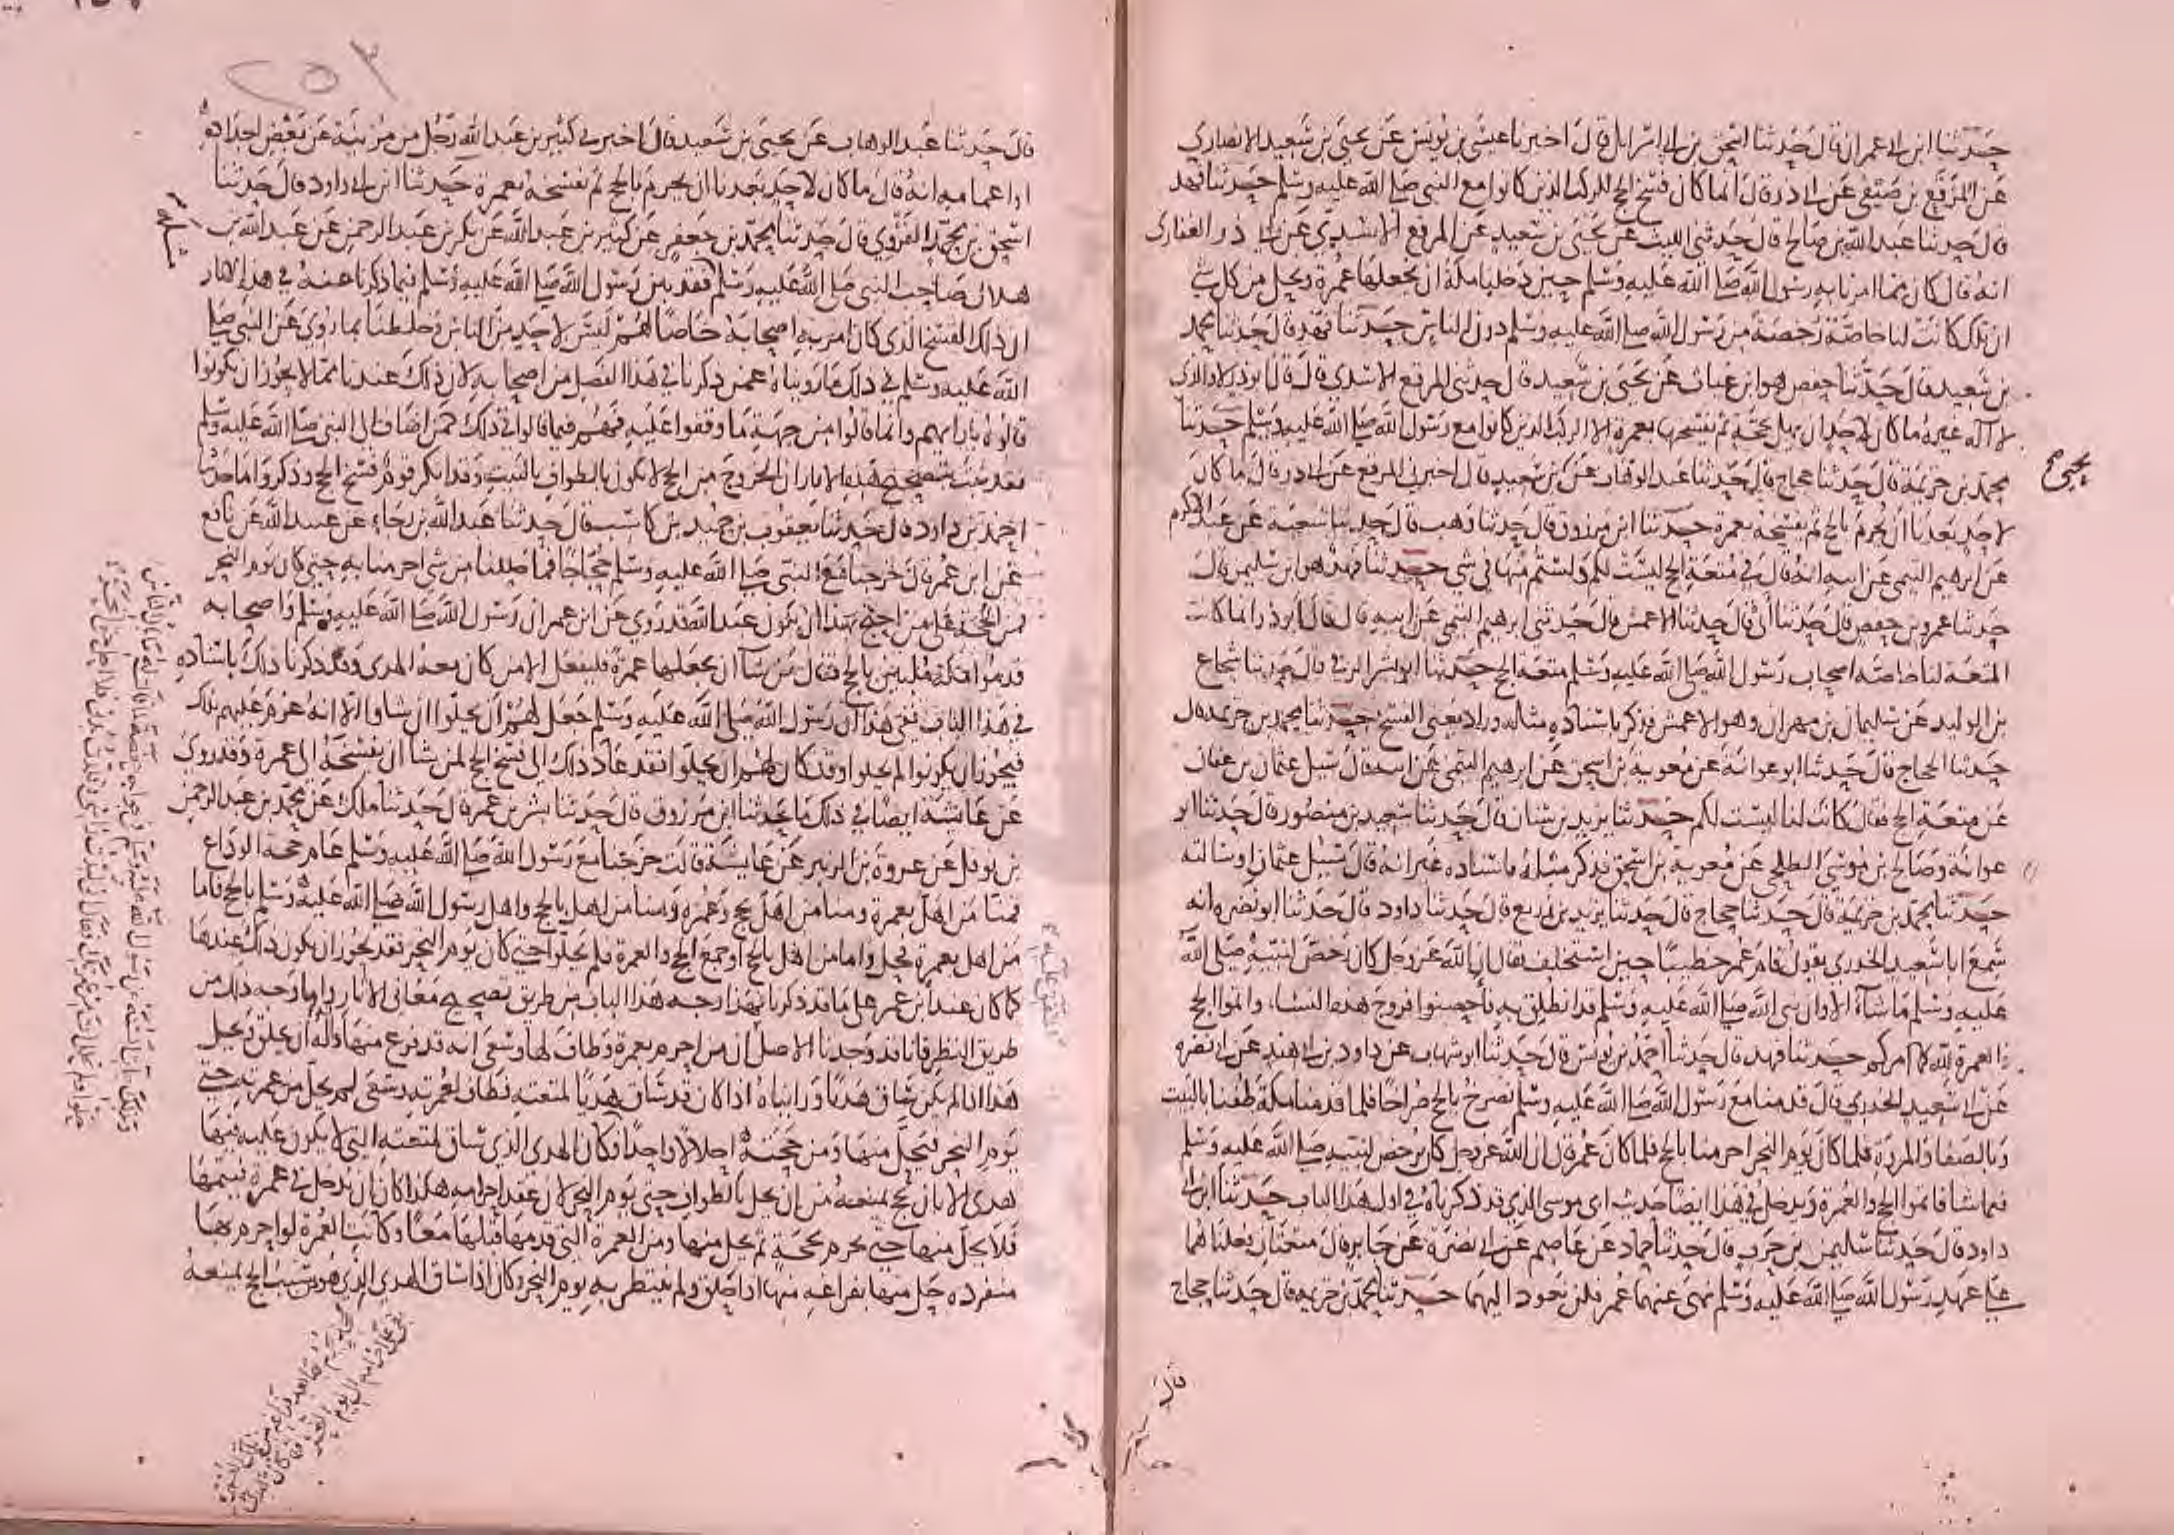 حدثنا ابن ابي عمران قال حدثنا اسحق بن ابي اسرايل قال اخبرنا عيسى بن يونس عن يحيى بن سعيد الانصاري
عن المرقع بن صيفي عن ابي ذر قال انما كان فسخ الحج للركب الذين كانوا مع النبي صلى الله عليه وسلم حدثنا فهد
قال حدثنا عبد الله بن صالح قال حدثني الليث عن يحيى بن سعيد عن المرقع الاسدي عن ابي ذر الغفاري
انه قال كان مما امرنا به رسول الله صلى الله عليه وسلم حين دخلنا مكة ان نجعلها عمرة ونحل من كل شي
ان تلك كانت لنا خاصة رخصة من رسول الله صلى الله عليه وسلم دون الناس حدثنا فهد قال حدثنا محمد
بن سعيد قال حدثنا حفص هو ابن غياث عن يحيى بن سعيد قال حدثني المرقع الاسدي قال قال ابو ذر لا والذي
لا اله غيره ما كان لاحد ان يهل بحجة ثم يفسخها بعمرة الا الركب الذين كانوا مع رسول الله صلى الله عليه وسلم حدثنا
محمد بن خزيمة قال حدثنا حجاج قال حدثنا عبد الوهاب عن بن سعيد قال اخبرني المرقع عن ابي ذر قال ما كان
يحيى
لاحد بعدنا ان يحرم بالحج ثم يفسخه بعمرة حدثنا ابن مرزوق قال حدثنا وهب قال حدثنا شعبة عن عبد الاكرم
عن ابرهيم التيمي عن ابيه انه قال في متعة الحج ليست لكم ولستم منها في شي حدثنا فهد هو ابن سليمن قال
حدثنا عمرو بن حفص قال حدثنا ابي قال حدثنا الاعمش قال حدثني ابرهيم التيمي عن ابيه قال قال ابو ذر انما كانت
المتعة لنا خاصة اصحاب رسول الله صلى الله عليه وسلم متعة الحج حدثنا ابو بشر الرقي قال حدثنا شجاع
بن الوليد عن سليمان بن مهران وهو الاعمش فذكر باسناده مثله وزاد يعني الفسخ حدثنا محمد بن خزيمة قال
حدثنا الحجاج قال حدثنا ابو عوانة عن معوية بن اسحق عن ابرهيم التيمي عن ابيه قال سيل عثمان بن عفان
عن متعة الحج فقال كانت لنا ليست لكم حدثنا يزيد بن سنان قال حدثنا سعيد بن منصور قال حدثنا ابو
عوانة وصالح بن موسى الطلحي عن معوية بن اسحق فذكر مثله باسناده غير انه قال سيل عثمان او سالته
حدثنا محمد بن خزيمة قال حدثنا حجاج قال حدثنا يزيد بن زريع قال حدثنا داود قال حدثنا ابو نضره انه
سمع ابا سعيد الخدري يقول قام عمر خطيبا حين استخلف فقال ان الله عز وجل كان رخص لنبيه صلى الله
عليه وسلم ما شاء الا وان نبي الله صلى الله عليه وسلم قد انطلق به فاحصنوا فروج هذه النساء واتموا الحج
والعمرة لله كما امركم حدثنا فهد قال حدثنا احمد بن يونس قال حدثنا ابو شهاب عن داود بن ابي هند عن ابي نضره
عن ابي سعيد الخدري قال قدمنا مع رسول الله صلى الله عليه وسلم نصرخ بالحج صراخا فلما قدمنا مكة طفنا بالبيت
وبالصفا والمروة فلما كان يوم النحر احرمنا بالحج فلما كان عمر قال ان الله عز وجل كان يرخص لنبيه صلى الله عليه وسلم
فيما شا فاتموا الحج والعمرة ويدخل في هذا ايضا حديث ابي موسى الذي قد ذكرناه في اول هذا الباب حدثنا ابن ابي
داود قال حدثنا سليمن بن حرب قال حدثنا حماد عن عاصم عن ابي نضرة عن جابر قال متعتان فعلناهما
على عهد رسول الله صلى الله عليه وسلم نهى عنهما عمر فلن نعود اليهما حدثنا محمد بن خزيمة قال حدثنا حجاج
قال
٢٥٣
قال حدثنا عبد الوهاب عن يحيى بن سعيد قال اخبرني كثير بن عبد الله رجل من مزينة عن بعض اجداده
او اعمامه انه قال ما كان لاحد بعدنا ان يحرم بالحج ثم يفسخه بعمرة حدثنا ابن ابي داود قال حدثنا
اسحق بن محمد الفروي قال حدثنا محمد بن جعفر عن كثير بن عبد الله عن بكر بن عبد الرحمن عن عبد الله بن
هلال صاحب النبي صلى الله عليه وسلم فقد بين رسول الله صلى الله عليه وسلم فيما ذكرنا عنه في هذه الاثار
ان ذلك الفسخ الذي كان امر به اصحابه خاصا لهم ليس لاحد من الناس وخلطنا بما روي عن النبي صلى
الله عليه وسلم في ذلك ما رويناه عمن ذكرنا في هذا الفصل من اصحابه لان ذلك عندنا مما لا يجوز ان يكونوا
قالوه بارايهم وانما قالوا من جهة ما وقفوا عليه فهم فيما قالوا في ذلك كمن اضاف الى النبي صلى الله عليه وسلم
فقد ثبت بتصحيح هذه الاثار ان الخروج من الحج لا يكون بالطواف بالبيت وقد انكر قوم فسخ الحج وذكروا ما حدثنا
احمد بن داود قال حدثنا يعقوب بن حميد بن كاسب قال حدثنا عبد الله بن رجاء عن عبيد الله عن نافع
عن ابن عمر قال خرجنا مع النبي صلى الله عليه وسلم حجاجا فما حللنا من شي احرمنا به حتى كان يوم النحر
فمن الحجة على من احتج بهذا ان بكر بن عبد الله قد روى عن ابن عمر ان رسول الله صلى الله عليه وسلم واصحابه
قدموا مكة ملبين بالحج فقال من شا ان يجعلها عمرة فليفعل الا من كان معه الهدى وقد ذكرنا ذلك باسناده
في هذا الباب ففي هذا ان رسول الله صلى الله عليه وسلم جعل لهم ان يحلوا ان شاوا لا انه عزم عليهم بذلك
فيجوز ان يكونوا لم يحلوا وقد كان لهم ان يحلوا فقد عاد ذلك الى فسخ الحج لمن شا ان يفسخه الى عمرة وقد روي
عن عايشة ايضا في ذلك ما حدثنا ابن مرزوق قال حدثنا بشر بن عمر قال حدثنا ملك عن محمد بن عبد الرحمن
بن نوفل عن عروة بن الزبير عن عايشة قالت خرجنا مع رسول الله صلى الله عليه وسلم عام حجة الوداع
فمنا من اهل بعمرة ومنا من اهل بحج وعمرة ومنا من اهل بالحج واهل رسول الله صلى الله عليه وسلم بالحج فاما
من اهل بعمرة فحل واما من اهل بالحج او جمع الحج والعمرة فلم يحلوا حتى كان يوم النحر فقد يجوز ان يكون ذلك عندها
كما كان عند ابن عمر على ما قد ذكرنا فهذا وجه هذا الباب من طريق تصحيح معاني الاثار واما وجه ذلك من
طريق النظر فانا قد وجدنا الاصل ان من احرم بعمرة وطاف لها وسعى انه قد فرغ منها وله ان يحلق ويحل
هذا اذا لم يكن ساق هديا ورايناه اذا كان قد ساق هديا لمتعته فطاف لعمرته وسعى لم يحل من عمرته حتى
يوم النحر فيحل منها ومن حجته احلالا واحدا فكان الهدى الذي ساق لمتعته التي لا يكون عليه فيها
هدى الا بان يحج يمنعه من ان يحل بالطواف حتى يوم النحر لان عقد احرامه هكذا كان ان يدخل في عمرة فيتمها
فلا يحل منها حتى يحرم بحجة ثم يحل منها ومن العمرة التي قدمها قبلها معا وكانت العمرة لو احرم بها
منفرده حل منها بفراغه منها اذا حلق ولم ينتظر به يوم النحر وكان اذا ساق الهدى الذي هو سبب الحج يمنعه